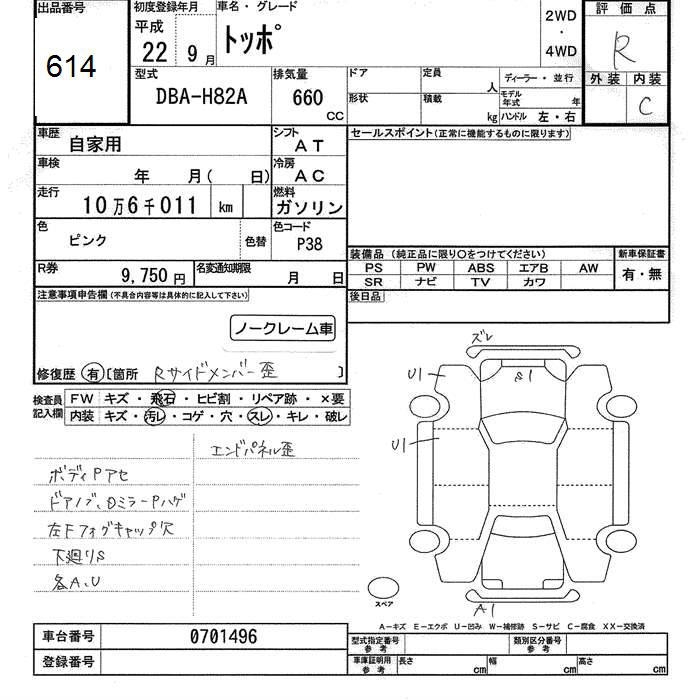 出品番号
614
初度登録年月
平成
22 9月
車名・グレード
トッポ
2WD
・
4WD
評価点
R
外装 内装
C
型式
DBA-H82A
排気量
660
CC
ドア
定員
人
形状
積載
kg
ディーラー・並行
モデル年式
年
ハンドル 左・右
車歴
自家用
シフト
AT
車検
年 月( 日)
冷房
AC
走行
10万6千011 km
燃料
ガソリン
色
ピンク
色替
色コード
P38
R券
9,750円
名変通知期限
月 日
セールスポイント(正常に機能するものに限ります)
装備品 (純正品に限り○をつけてください)
新車保証書
PS PW ABS エアB AW
SR ナビ TV カワ
有・無
後日品
注意事項申告欄(不具合内容等は具体的に記入して下さい)
ノークレーム車
修復歴 有 [箇所 Rサイドメンバー歪 ]
検査員記入欄
FW キズ・飛石・ヒビ割・リペア跡・×要
内装 キズ・汚レ・コゲ・穴・スレ・キレ・破レ
エンドパネル歪
ボディPアセ
ドアノブ、DミラーPハゲ
左FフォグキャップP穴
下廻りS
各A、U
ズレ
S1
U1
U1
A1
スペア
A-キズ E-エクボ U-凹み W-補修跡 S-サビ C-腐食 XX-交換済
車台番号
0701496
登録番号
型式指定番号
参考
類別区分番号
参考
車庫証明用
参考
長さ cm
幅 cm
高さ cm